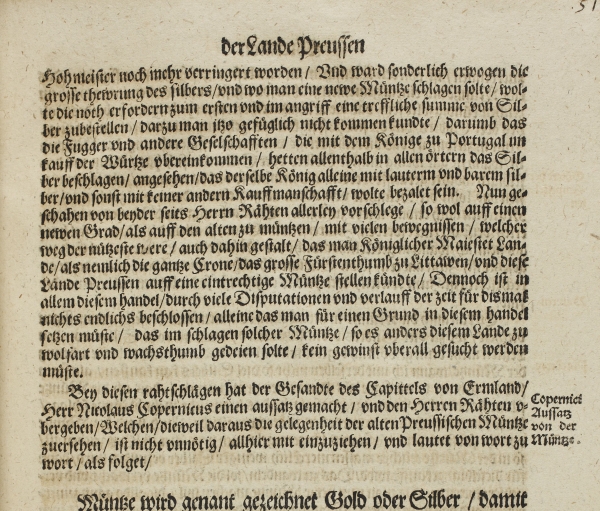 51
der Lande Preussen
Hohmeister noch mehr verringert worden / Vnd ward sonderlich erwogen die
grosse thewrung des silbers / vnd wo man eine newe Müntze schlagen solte / wol-
te die nöth erfordern zum ersten vnd im angriff eine treffliche summe von Sil-
ber zubestellen / darzu man jtzo gefüglich nicht kommen kundte / darumb das
die Fugger vnd andere Geselschafften / die mit dem Könige zu Portugal im
kauff der Würtze vbereinkommen / hetten allenthalb in allen örtern das Sil-
ber beschlagen / angesehen / das derselbe König alleine mit lauterm vnd barem sil-
ber / vnd sonst mit keiner andern Kauffmanschafft / wolte bezalet sein. Nun ge-
schahen von beyder seits Herrn Rähten allerley vorschlege / so wol auff einen
newen Grad / als auff den alten zu müntzen / mit vielen bewegnissen / welcher
weg der nützeste were / auch dahin gestalt / das man Königlicher Maiestet Lan-
de / als nemlich die gantze Crone / das grosse Fürstenthumb zu Littawen / vnd diese
Lande Preussen auff eine eintrechtige Müntze stellen kündte / Dennoch ist in
allem diesem handel / durch viele Disputationen vnd verlauff der zeit für dismal
nichts endlichs beschlossen / alleine das man für einen Grund in diesem handel
setzen müste / das im schlagen solcher Müntze / so es anders diesem Lande zu
wolfart vnd wachsthumb gedeien solte / kein gewinst vberall gesucht werden
müste.
Bey diesen rahtschlägen hat der Gesandte des Capittels von Ermland /
Herr Nicolaus Copernicus einen aussatz gemacht / vnd den Herren Rähten v-
bergeben / Welchen / dieweil daraus die gelegenheit der alten Preussischen Müntze
zuersehen / ist nicht vnnötig / allhier mit einzuziehen / vnd lautet von wort zu
wort / als folget /
Copernici
Aussatz
von der
Müntze.
Müntze wird genant gezeichnet Gold oder Silber / damit